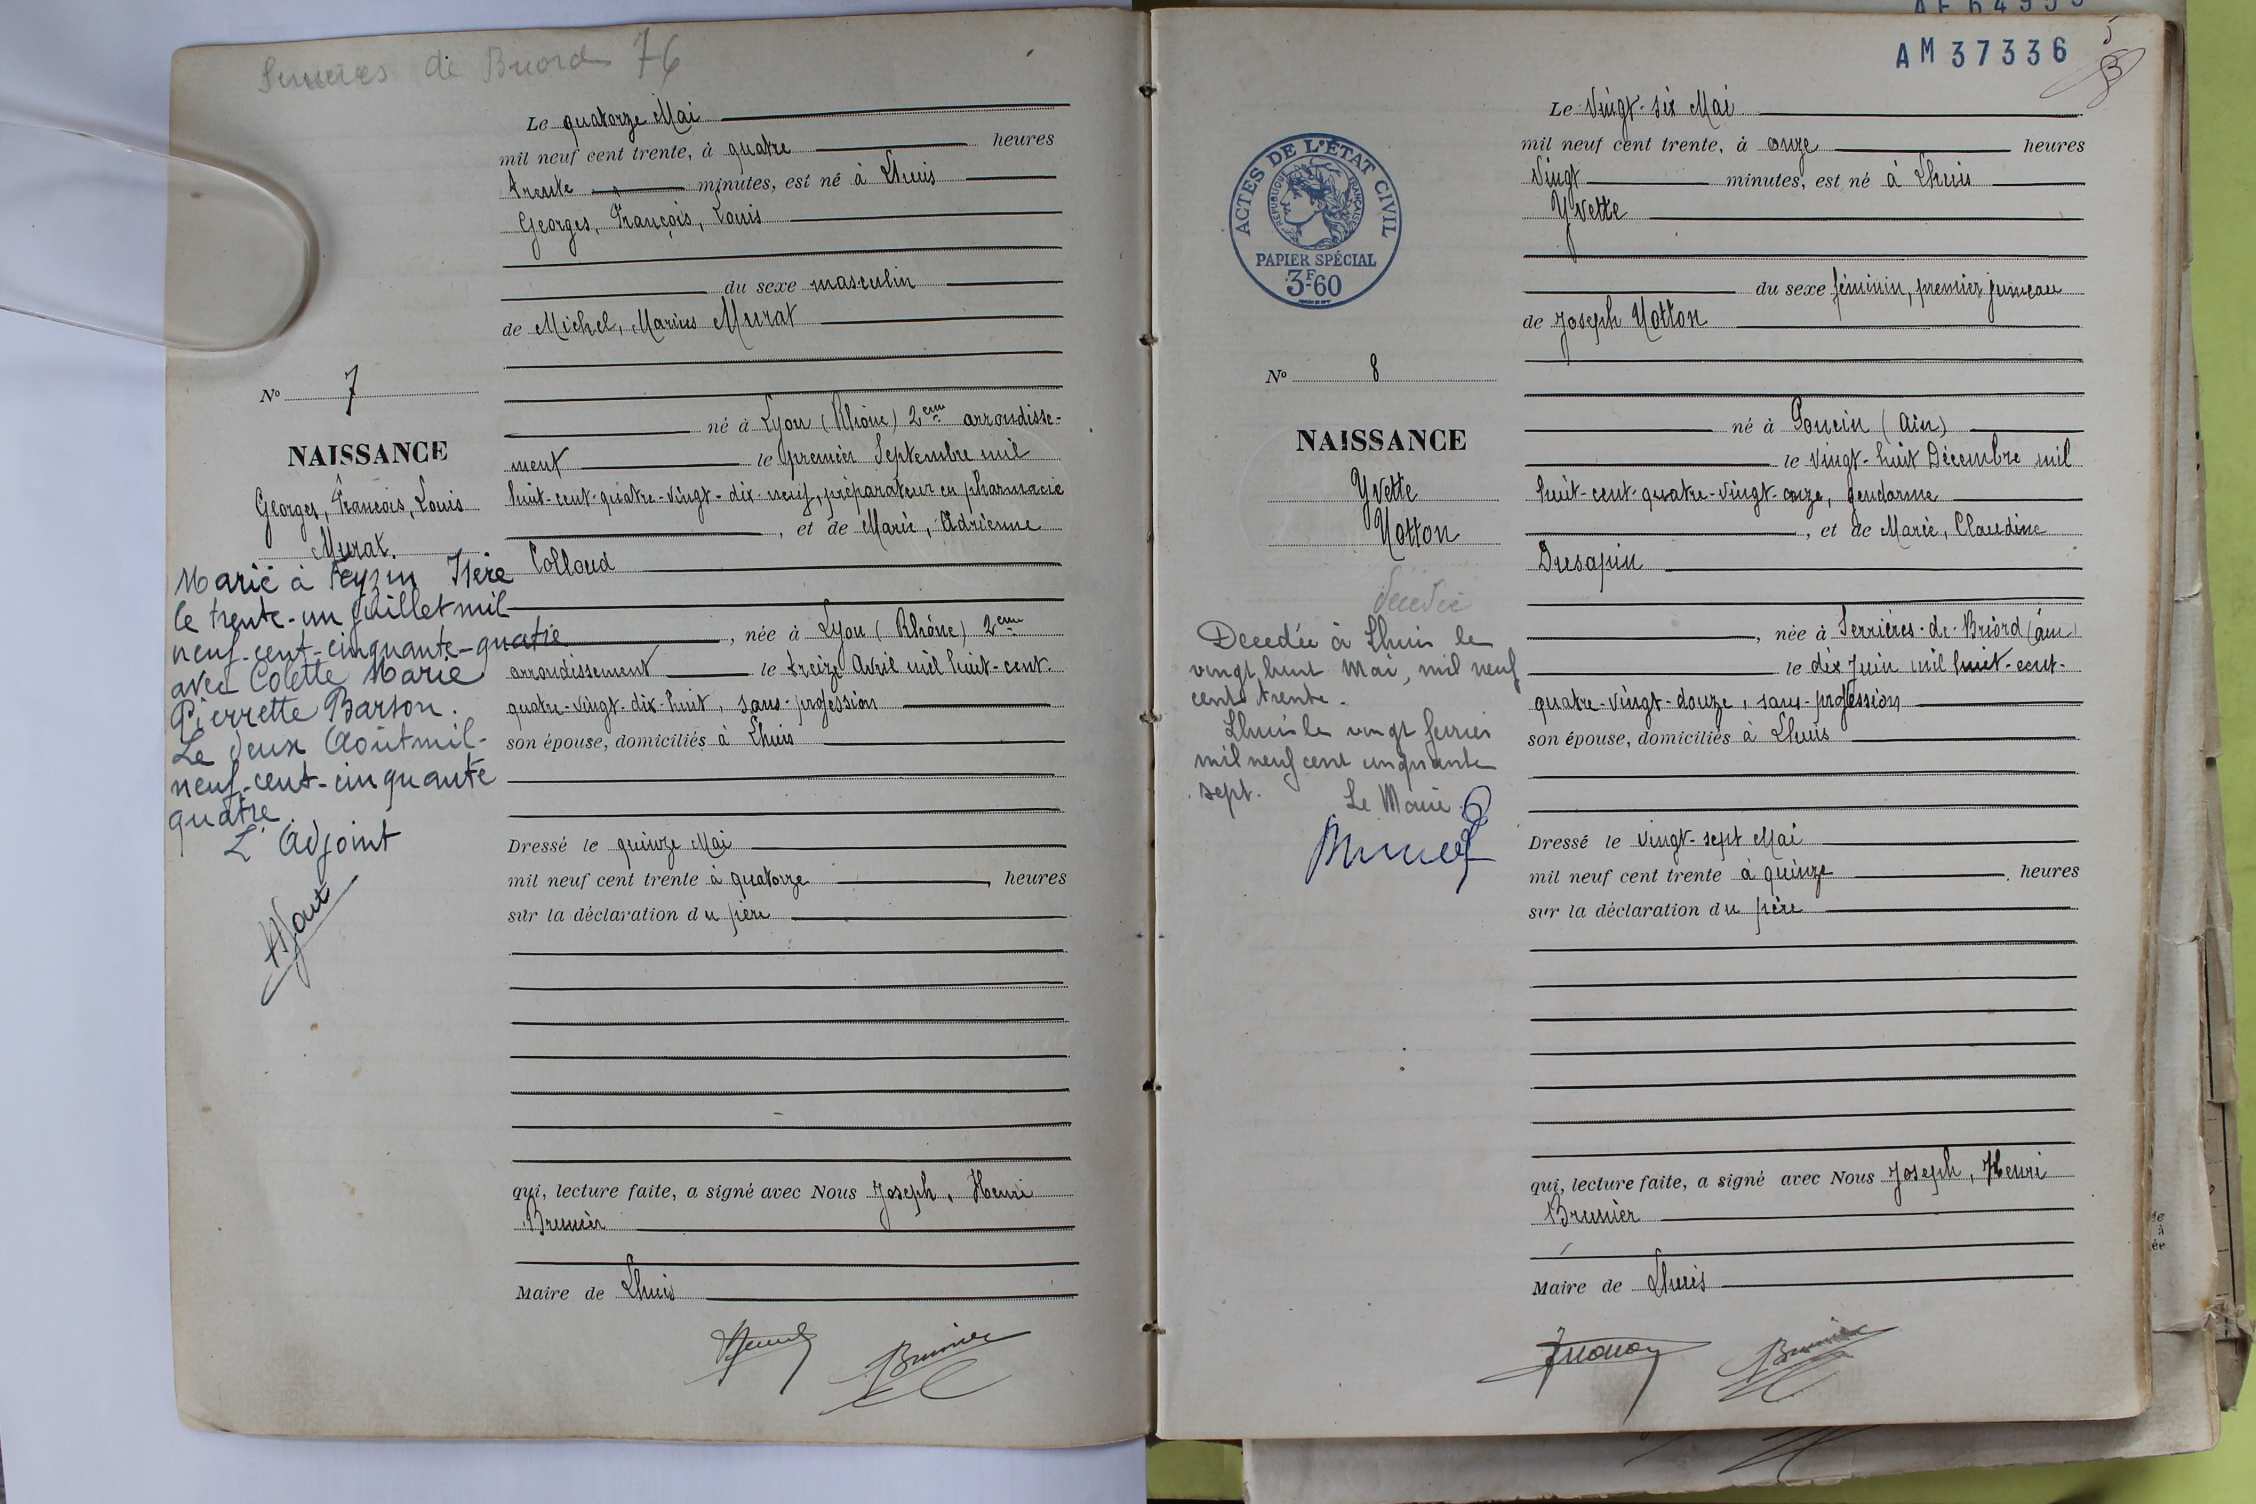 Serrières de Briord 76
Le quatorze Mai
mil neuf cent trente, à quatre heures
trente minutes, est né à Lhuis
Georges, François, Louis
du sexe masculin
de Michel, Marius Murat
né à Lyon (Rhône) 2eme arrondisse-
ment le premier Septembre mil
huit-cent-quatre-vingt-dix-neuf, préparateur en pharmacie
, et de Marie, Adrienne
Colloud
, née à Lyon (Rhône) 2eme
arrondissement le treize Avril mil huit-cent-
quatre-vingt-dix-huit, sans-profession
son épouse, domiciliés à Lhuis
Dressé le quinze Mai
mil neuf cent trente à quatorze, heures
sur la déclaration du père
qui, lecture faite, a signé avec Nous Joseph, Henri
Brunier
Maire de Lhuis
Brunier
No 7
NAISSANCE
Georges, François, Louis
Murat.
Marié à Feyzin Isère
le trente-un Juillet mil
neuf-cent-cinquante-quatre
avec Colette Marie
Pierrette Barson.
Le deux Août mil-
neuf-cent-cinquante
quatre
L'Adjoint
AM 37336
5
ACTES DE L'ÉTAT CIVIL
RÉPUBLIQUE FRANÇAISE
PAPIER SPÉCIAL
3F60
No 8
NAISSANCE
Yvette
Notton
décédée
Decedée à Lhuis le
vingt huit Mai, mil neuf
cent trente.
Lhuis le vingt fevrier
mil neuf cent cinquante
sept.
Le Maire
Le vingt-six Mai
mil neuf cent trente, à onze heures
vingt minutes, est né à Lhuis
Yvette
du sexe féminin, premier jumeau
de Joseph Notton
né à Poncin (Ain)
le vingt-huit Décembre mil
huit-cent-quatre-vingt-onze, gendarme
, et de Marie, Claudine
Dusapin
, née à Serrières-de-Briord (Ain)
le dix Juin mil huit-cent-
quatre-vingt-douze, sans-profession
son épouse, domiciliés à Lhuis
Dressé le vingt-sept Mai
mil neuf cent trente à quinze. heures
sur la déclaration du père
qui, lecture faite, a signé avec Nous Joseph, Henri
Brunier
Maire de Lhuis
Brunier